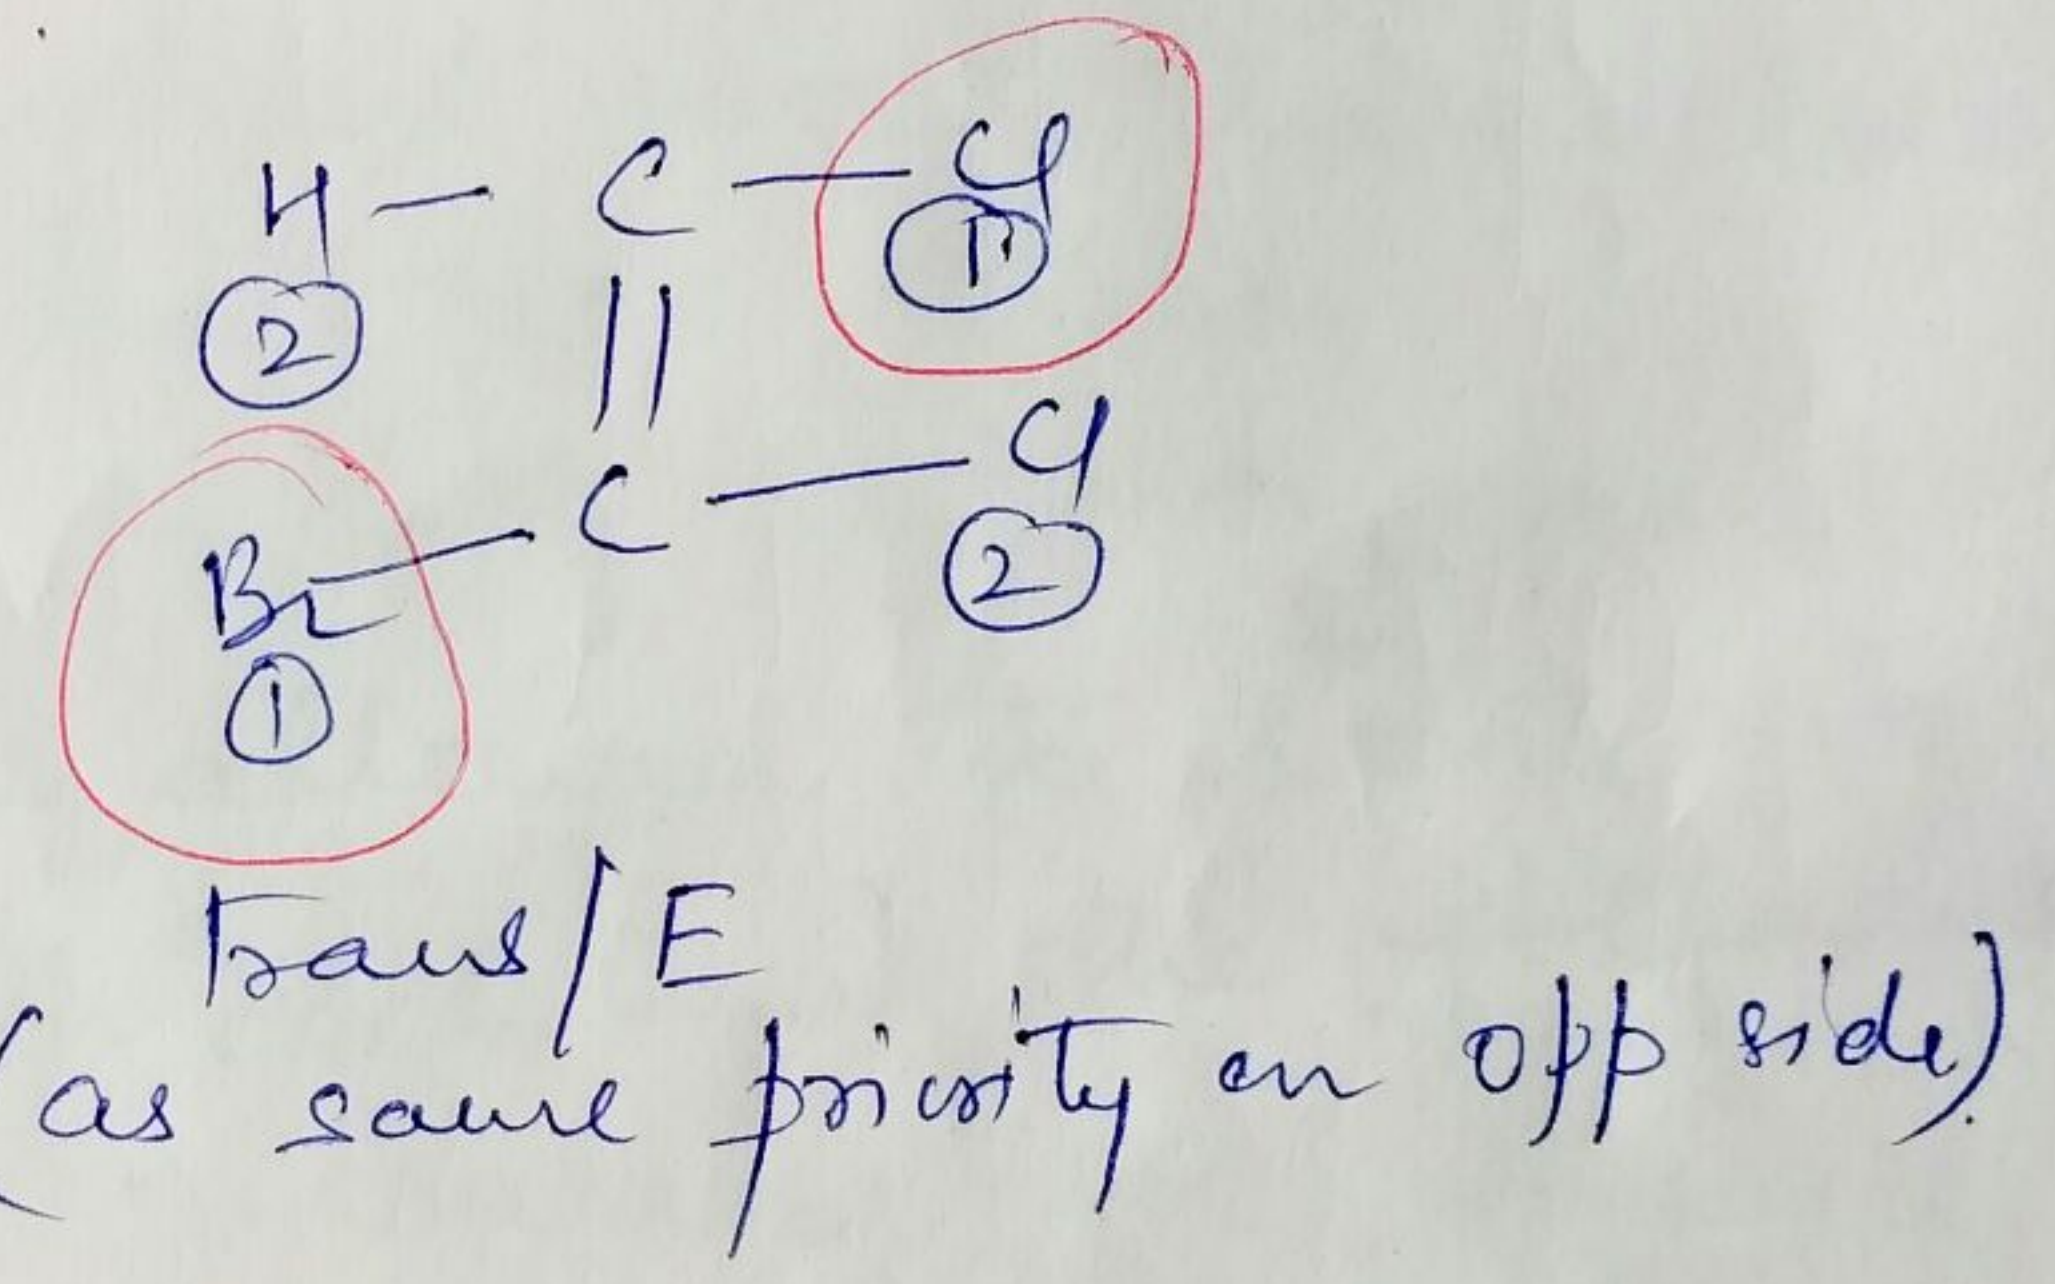 H - C - Cl
2 1
||
Br - C - Cl
1 2
Trans/E
(as same priority on opp side).